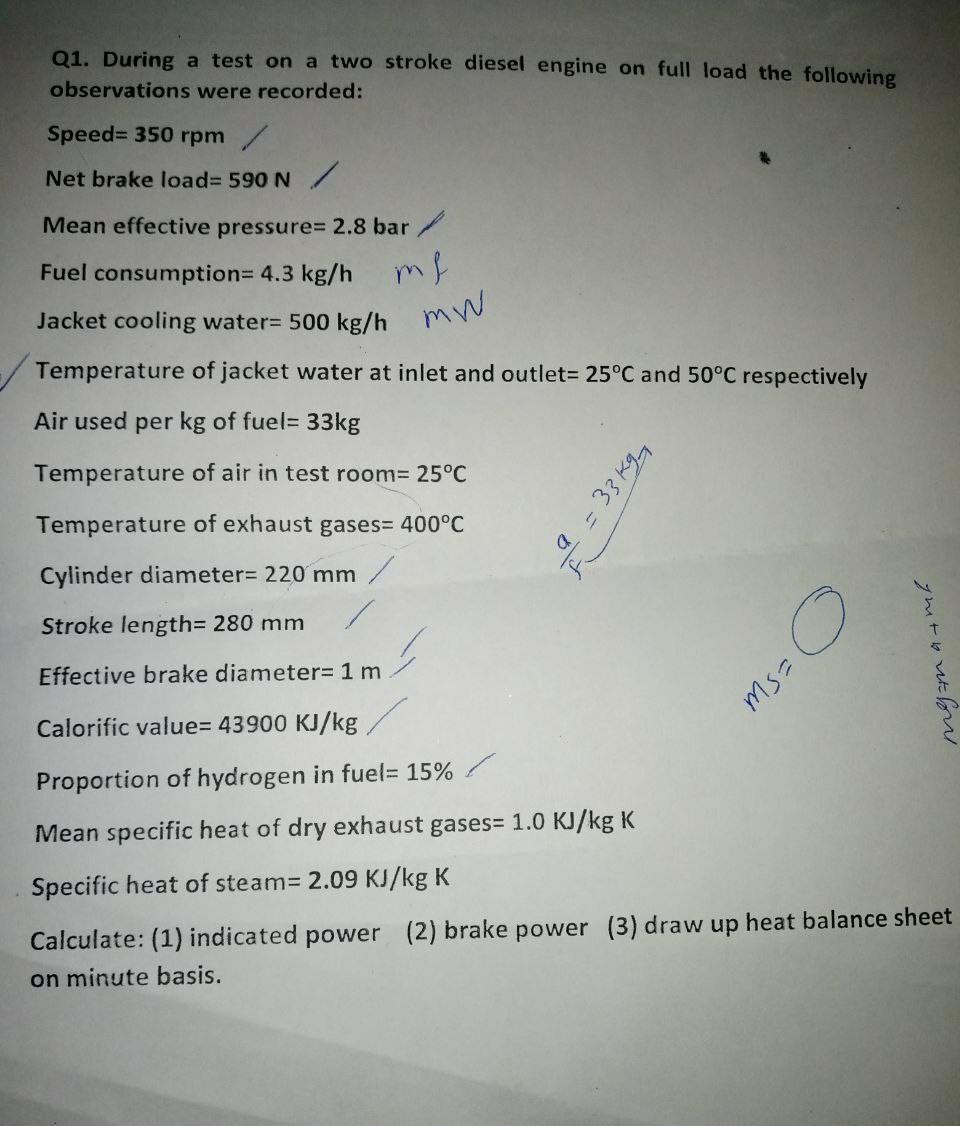 Q1. During a test on a two stroke diesel engine on full load the following
observations were recorded:
Speed= 350 rpm
Net brake load= 590 N
Mean effective pressure= 2.8 bar
Fuel consumption= 4.3 kg/h mf
Jacket cooling water= 500 kg/h mW
Temperature of jacket water at inlet and outlet= 25°C and 50°C respectively
Air used per kg of fuel= 33kg
Temperature of air in test room= 25°C
Temperature of exhaust gases= 400°C
a/f = 33 kg
Cylinder diameter= 220 mm
Stroke length= 280 mm
Effective brake diameter= 1 m
ms=
Calorific value= 43900 KJ/kg
Proportion of hydrogen in fuel= 15%
Mean specific heat of dry exhaust gases= 1.0 KJ/kg K
Specific heat of steam= 2.09 KJ/kg K
Calculate: (1) indicated power (2) brake power (3) draw up heat balance sheet
on minute basis.